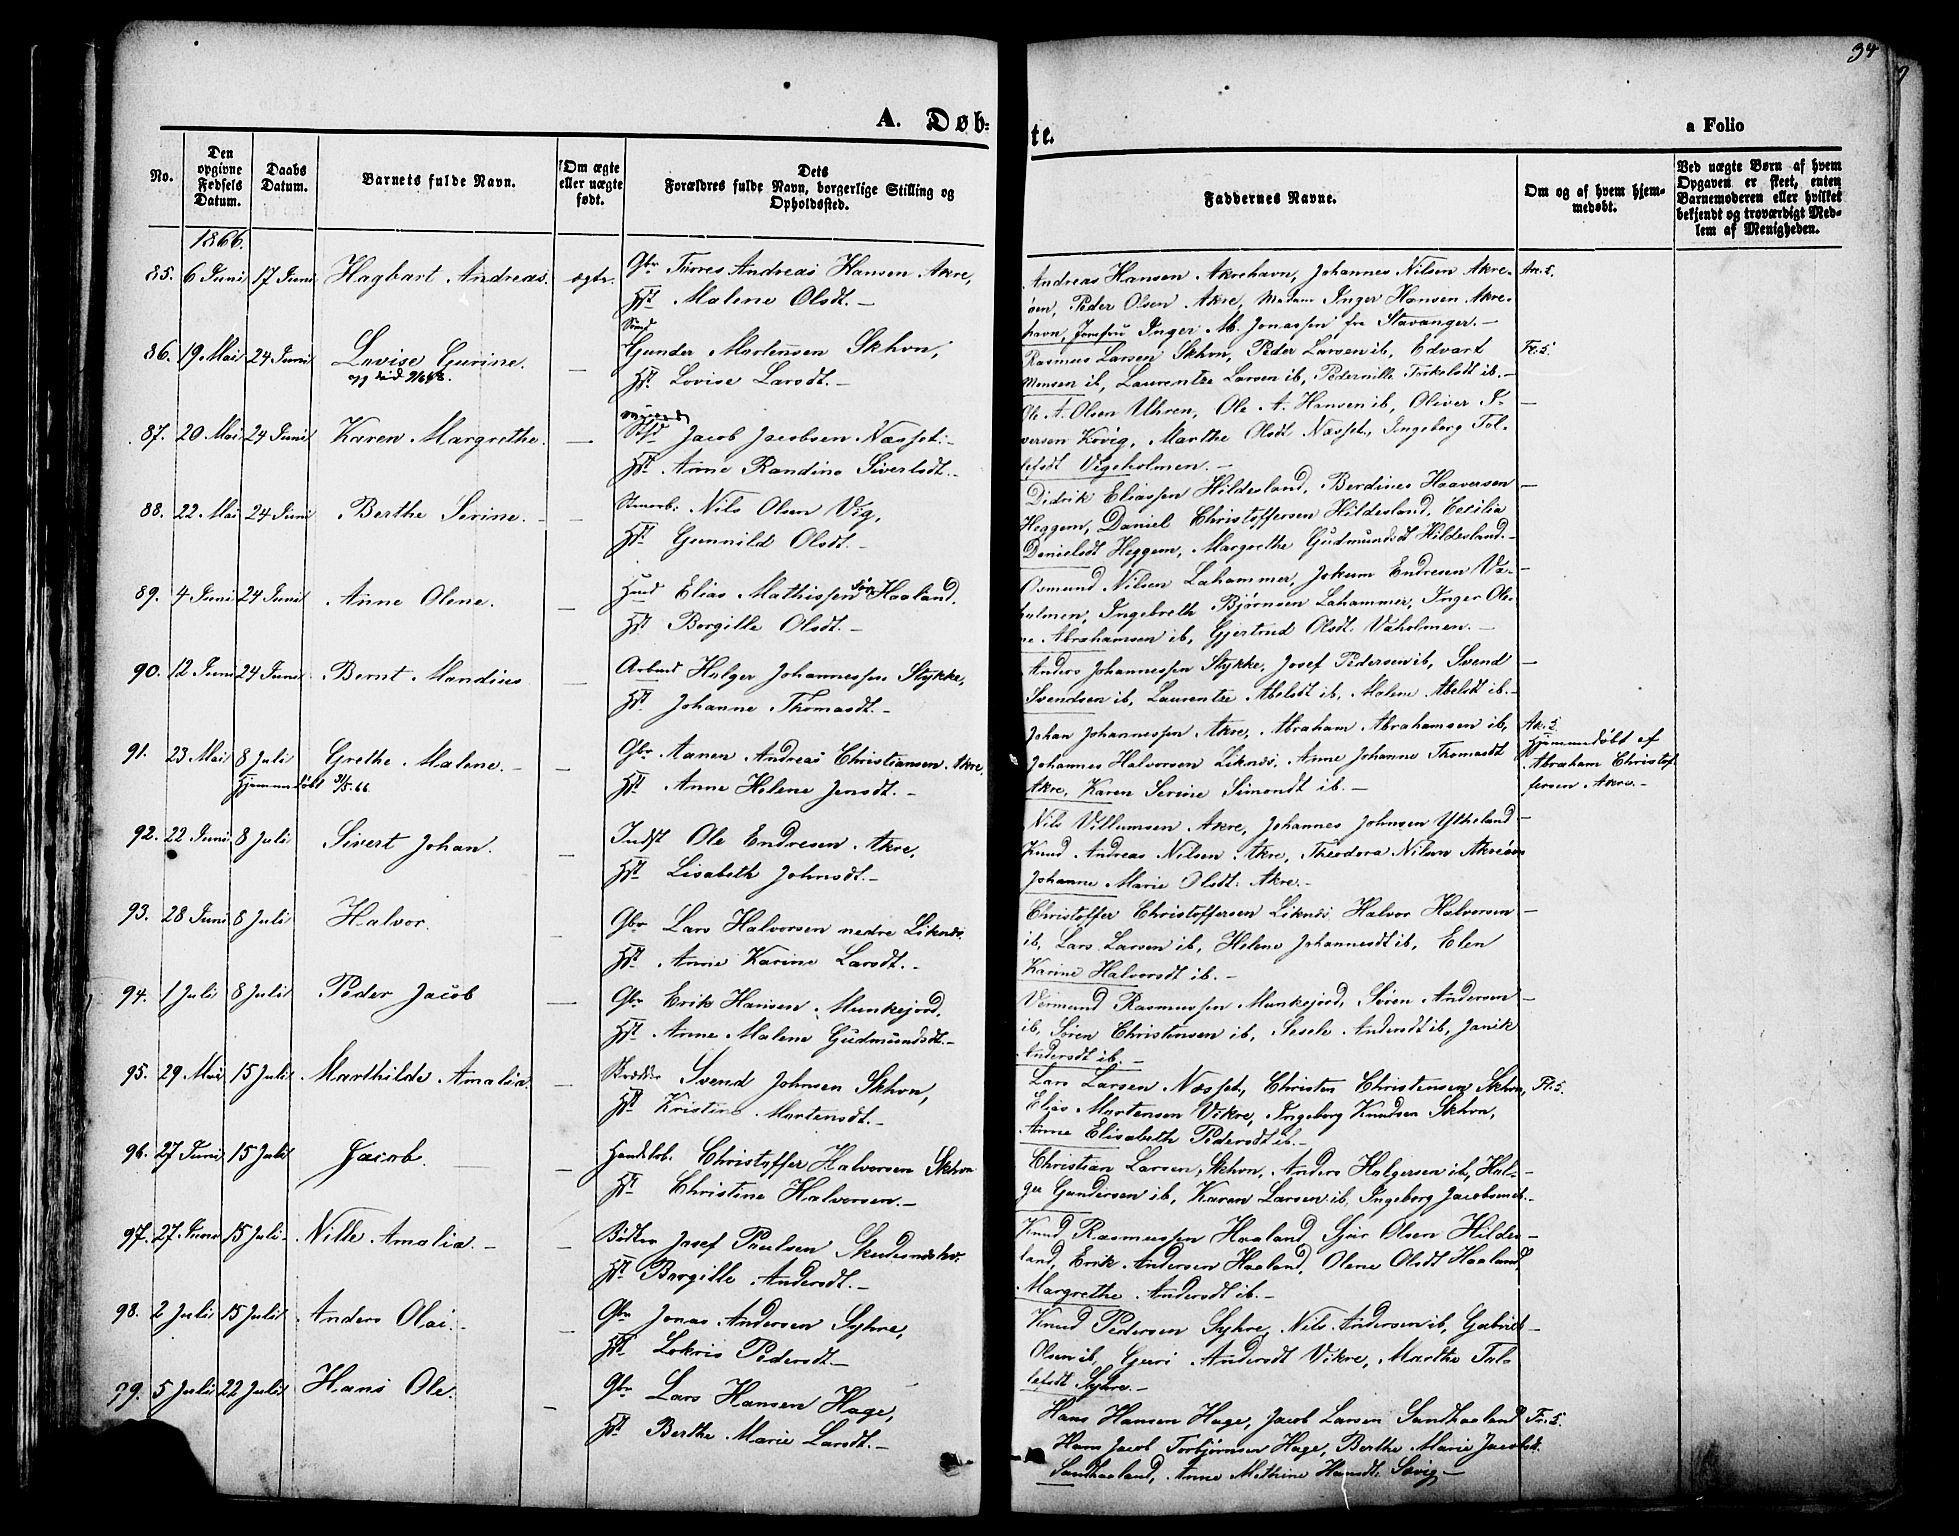 34
A. Døb-
te.
a Folio
No.
Den opgivne Fødsels Datum.
Daabs Datum.
Barnets fulde Navn.
Om ægte eller uægte født.
Dets
Forældres fulde Navn, borgerlige Stilling og
Opholdssted.
Faddernes Navne.
Om og af hvem hjem-
medøbt.
Ved uægte Børn af hvem
Opgaven er skeet, enten
Barnemoderen eller hvilket
bekjendt og troværdigt Med-
lem af Menigheden.
1866.
85. 6 Juni 17 Juni Hagbart Andreas. ægte. Gbr Torres Andreas Hansen Akre,
Hst Malene Olsdt. -
Andreas Hansen Akrehavn, Johannes Nilsen Akre-
øen, Peder Olsen Akre, Madam Inger Hansen Akre-
havn, Jomfru Inger M. Jonassen fra Stavanger. -
86. 19 Mai 24 Juni Lovise Gurine. - Gunder Mortensen Skhvn,
Hst Lovise Larsdt. -
Rasmus Larsen Skhvn, Peder Larsen ib, Edvart
Monsen ib, Laurentze Larsen ib, Pedernille ib. -
87. 20 Mai 24 Juni Karen Margrethe. - Jacob Jacobsen Næsset. -
Hst Anne Randine Sivertsdt. -
Ole A. Olsen Uhren, Ole A. Hansen ib, Oliver I-
versen Kovig, Marthe Olsdt Næsset, Ingeborg Tol-
lefsdt Vigeholmen. -
88. 22 Mai 24 Juni Berthe Serine. - Nils Olsen Vig,
Hst Gunnild Olsdt. -
Didrik Eliassen Hildesland, Berdines Haaversen
Heggem, Daniel Christoffersen Hildesland, Cecilia
Danielsdt Heggem, Margrethe Gudmundsdt Hildesland. -
89. 4 Juni 24 Juni Anne Olene. - Husd Elias Mathissen Haaland.
Hst Borgille Olsdt. -
Osmund Nilsen Lahammer, Jokum Endresen Va-
holmen, Ingebreth Bjørnsen Lahammer, Inger Ole-
ne Abrahamsen ib, Gjertrud Olsdt. Vaholmen. -
90. 12 Juni 24 Juni Bernt Mandius - Arbmd Holger Johannessen Stykke,
Hst Johanne Thomasdt. -
Anders Johannessen Stykke, Josef Pedersen ib, Svend
Svendsen ib, Laurentze Abelsdt ib, Malene Abelsdt ib. -
91. 23 Mai 8 Juli Grethe Malene. - Gbr Aanen Andreas Christiansen Akre,
Hjemmedøbt 31/5.66
Hst Anne Helene Jensdt. -
Johan Johannessen Akre, Abraham Abrahamsen ib,
Johannes Halvorsen Liknes, Anne Johanne Thomasdt
Akre, Karen Serine Simondt ib. -
Hjemmedøbt af
Abraham Christof
fersen Akre. -
92. 22 Juni 8 Juli Sivert Johan. - Indst Ole Endresen Akre,
Hst Lisabeth Johnsdt. -
Nils Villumsen Akre, Johannes Johnsen Ytreland
Knud Andreas Nilsen Akre, Theodora Nilsen Akreøen
Johanne Marie Olsdt. Akre. -
93. 28 Juni 8 Juli Halvor. - Gbr Lars Halvorsen nedre Liknes.
Hst Anne Karine Larsdt. -
Christoffer Christoffersen Liknes, Halvor Halvorsen
ib, Lars Larsen ib, Helene Johannesdt ib, Elen
Karine Halvorsdt ib. -
94. 1 Juli 8 Juli Peder Jacob - Gbr Erik Hansen Munkejord,
Hst Anne Malene Gudmundsdt. -
Vermund Rasmussen Munkejord, Søren Andersen
ib, Søren Christensen ib, Sesele Andersdt ib, Janik
Andersdt ib. -
95. 29 Mai 15 Juli Marthilde Amalia - Svend Johnsen Skhvn,
Hst Kristine Mortensdt. -
Lars Larsen Næsset, Christen Christensen Skhvn,
Elias Mortensen Vikre, Ingeborg Knudsen Skhvn,
Anne Elisabeth Pedersdt ib. -
96. 27 Juni 15 Juli Jacob. - Handelsb. Christoffer Halvorsen Skhvn
Hst Christine Halvorsen. -
Christian Larsen, Skhvn, Anders Holgersen ib, Hol-
ger Gundersen ib, Karen Larsen ib, Ingeborg Jacobsen ib. -
97. 27 Juni 15 Juli Nille Amalia. - Bødker Josef Poulsen Skudesneshv:
Hst Borgille Andersdt. -
Knud Rasmussen Haaland, Sjur Olsen Hildes-
land, Erik Andersen Haaland, Olene Olsdt Haaland,
Margrethe Andersdt ib. -
98. 2 Juli 15 Juli Anders Olai. - Gbr Jonas Andersen Syhre,
Hst Lokris Pedersdt. -
Knud Pedersen Syhre, Nils Andersen ib, Gabriel
Olsen ib, Guri Andersdt Vikre, Marthe Tol-
lefsdt Syhre. -
99. 5 Juli 22 Juli Hans Ole. - Gbr Lars Hansen Hage,
Hst Berthe Marie Larsdt. -
Hans Hansen Hage, Jacob Larsen Sandhaaland
Hans Jacob Torbjørnsen Hage, Berthe Marie Jacobsdt.
Sandhaaland, Anne Mathine Hansdt. Sævig -